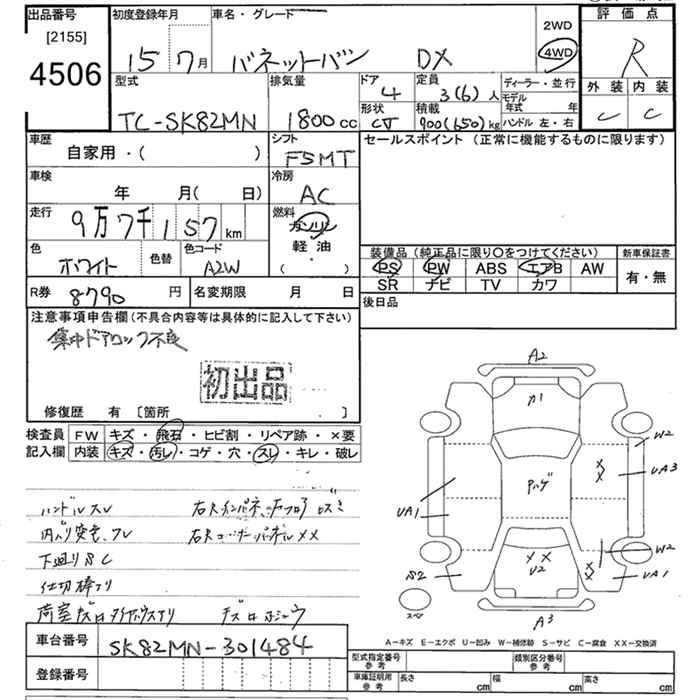 出品番号 初度登録年月 車名・グレード 2WD 評価点
[2155]
4506 15 7月 バネットバン DX 4WD R
型式 排気量 ドア 定員 ディーラー・並行 外装 内装
4 3(6)人 モデル年式 年
TC-SK82MN 1800cc 形状 積載 ハンドル 左・右 C C
900(650)kg
車歴 シフト セールスポイント (正常に機能するものに限ります)
自家用・( ) F5MT
車検 冷房
年 月( 日) AC
走行 燃料
9万7千157km ガソリン
軽油
( ・ )
色 色替 色コード 装備品 (純正品に限り○をつけてください) 新車保証書
ホワイト A2W PS PW ABS エアB AW 有・無
SR ナビ TV カワ
R券 8790 円 名変期限 月 日 後日品
注意事項申告欄(不具合内容等は具体的に記入して下さい)
集中ドアロック不良
初出品
修復歴 有 [箇所 ]
検査員 FW キズ・飛石・ヒビ割・リペア跡・×要
記入欄 内装 キズ・汚レ・コゲ・穴・スレ・キレ・破レ
ハンドルスレ
下廻りSC
仕切棒アリ
車台番号 SK82MN-301484
登録番号
A2
A1
W2
UA3
UA1
××
U2
W2
S2
UA1
スペア
A3
A-キズ E-エクボ U-凹み W-補修跡 S-サビ C-腐食 XX-交換済
型式指定番号 参考 類別区分番号 参考
車庫証明用 参考 長さ cm 幅 cm 高さ cm